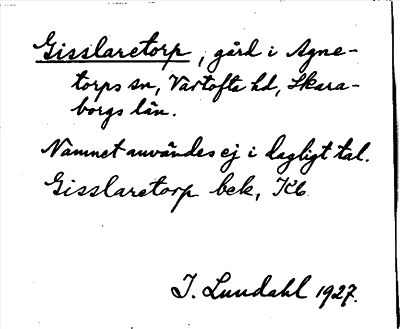 Gisslaretorp, gård i Agne-
torps sn, Vartofta hd, Skara-
borgs län.
Namnet användes ej i dagligt tal.
Gisslaretorp bek, Kb
I. Lundahl 1927.